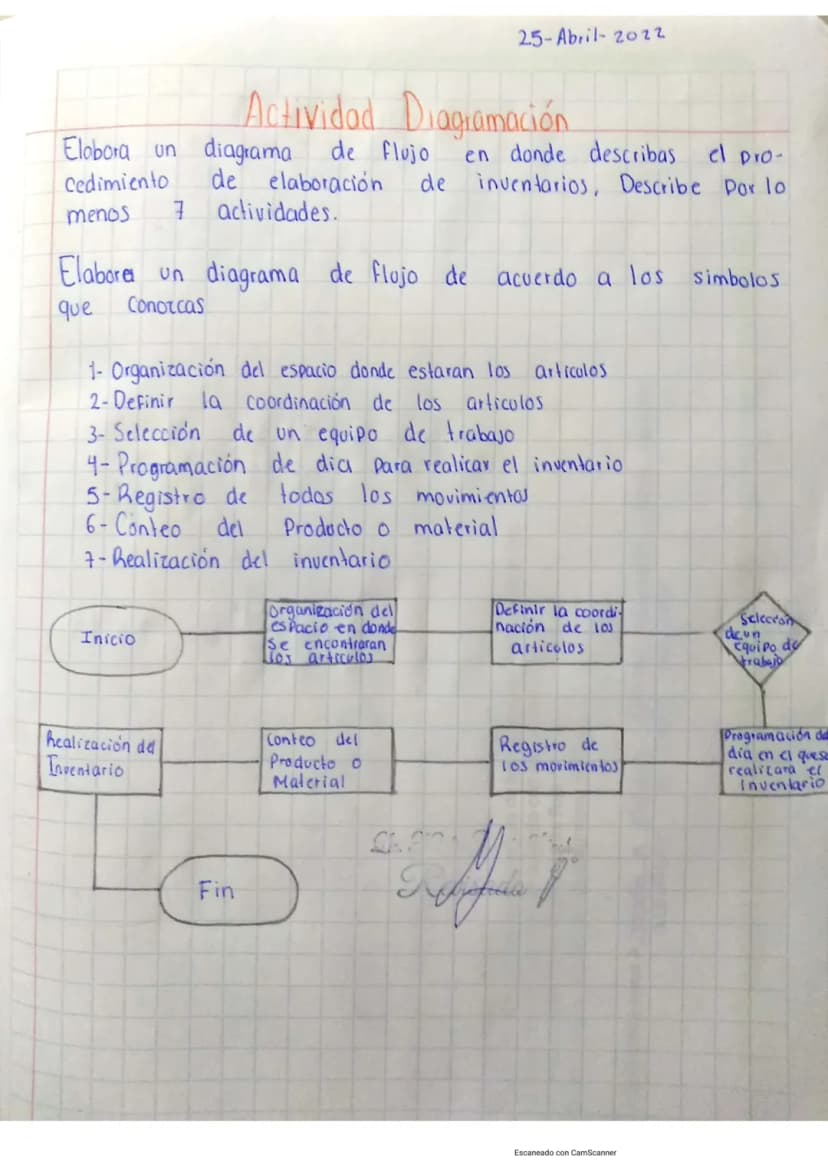 25-Abril-2022
Actividad Diagramación
Elobora un diagrama de flujo en donde describas el pro-
cedimiento de elaboración de inventarios. Describe Por lo
menos 7 actividades.
Elabora un diagrama de flujo de acuerdo a los simbolos
que conozcas
1- Organización del espacio donde estaran los articulos
2- Definir la coordinación de los articulos
3- Selección de un equipo de trabajo
4- Programación de dia para realicar el inventario
5- Registro de todos los movimientos
6- Conteo del Producto o material
7- Realización del inventario
Inicio
Organización del
espacio en donde
se encontraran
los articulos
Definir la coordi-
nación de los
articulos
Selección
de un
equipo de
trabajo
Realización del
Inventario
Conteo del
Producto o
Material
Registro de
los movimientos
Programación de
dia en el que se
realizara el
Inventario
Fin
Escaneado con CamScanner